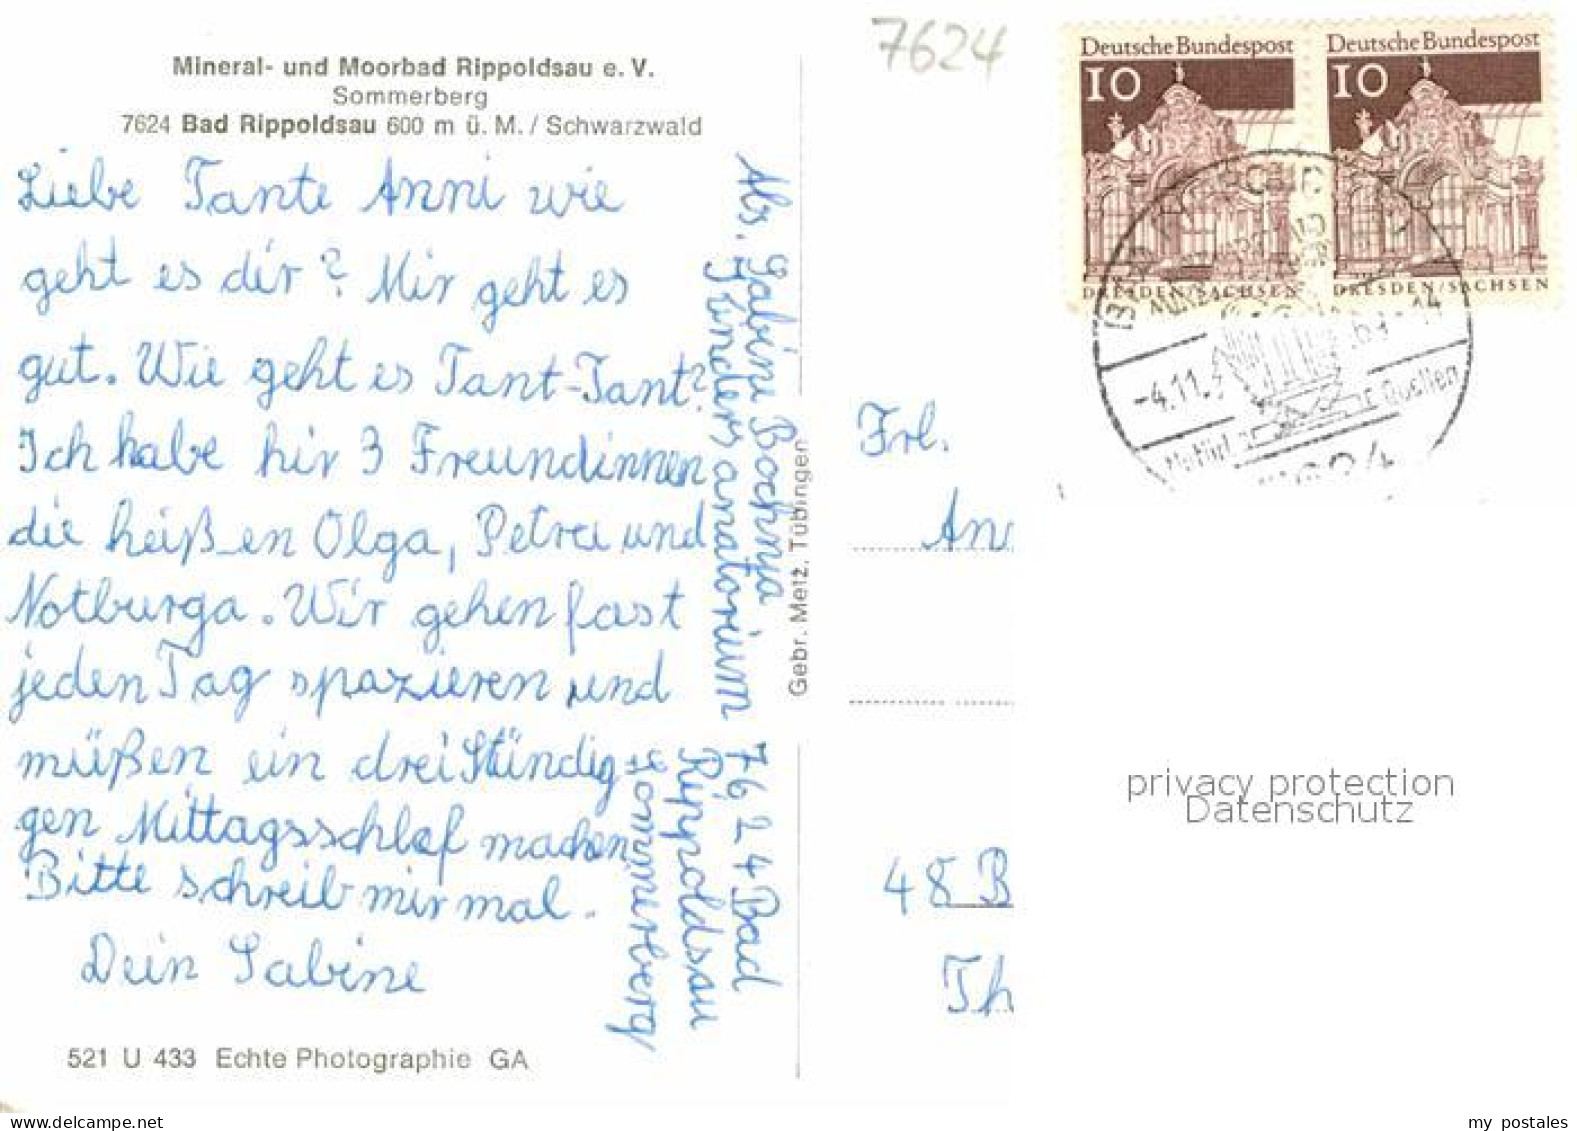 7624
Mineral- und Moorbad Rippoldsau e. V.
Sommerberg
7624 Bad Rippoldsau 600 m ü. M. / Schwarzwald
Liebe Tante Anni wie
geht es dir? Mir geht es
gut. Wie geht es Tant-Tant?
Ich habe hir 3 Freundinnen
die heißen Olga, Petra und
Notburga. Wir gehen fast
jeden Tag spazieren und
müßen ein dreistündig-
gen Mittagsschlaf machen
Bitte schreib mir mal.
Dein Sabine
Abs. Sabine Bochnia
Kindersanatorium
7624 Bad
Rippoldsau
Sommerberg
521 U 433 Echte Photographie GA
Gebr. Metz, Tübingen
Deutsche Bundespost
10
DRESDEN/SACHSEN
Deutsche Bundespost
10
DRESDEN/SACHSEN
-4.11.
-14
Quellen
Frl.
An
48 B
Th
privacy protection
Datenschutz
delcampe.net
my_postales